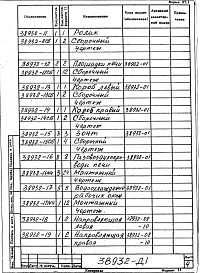 Обозначение Наименование
38932-11 1 1 Ролик
38932-11СБ 1 2 Сборочный
чертеж
38932-12 2 2 Площадки печи 38932-01
38932-12СБ Сборочный
чертеж
38932-13 1 1 Короб левый 38932-01
38932-13СБ 1 2 Сборочный
чертеж
38932-14 1 1 Короб правый 38932-01
38932-14СБ 1 2 Сборочный
чертеж
38932-15 3 3 Зонт 38932-01
38932-15СБ 1 4 Сборочный
чертеж
38932-16 8 8 Газовоздухопро-
воды 38932-01
24 Монтажный
чертеж
38932-17 5 5 Водоохлаждение 38932-01
рабочих окон
12 Монтажный
чертеж
38932-18 1 2 Направляющая
левая -10
38932-19 1 2 Направляющая
правая -10
38932-Д1
Копировал Формат 11